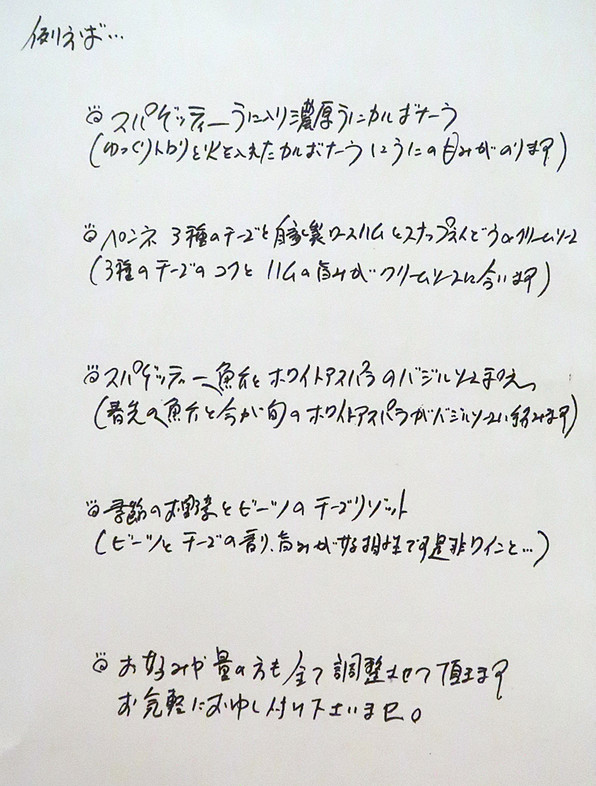 例えば…
スパゲッティー うに入り濃厚うにカルボナーラ
(ゆっくりトロリと火を入れたカルボナーラにうにの旨みがのります)
ペンネ 3種のチーズと自家製ロースハムとスナップえんどうのクリームソース
(3種のチーズのコクとハムの旨みがクリームソースに合います)
スパゲッティー 魚介とホワイトアスパラのバジルソース和え
(春先の魚介と今が旬のホワイトアスパラがバジルソースに絡みます)
季節のお野菜とビーツのチーズリゾット
(ビーツとチーズの香り、旨みが好相性です是非ワインと…)
お好みや量の方も全て調整させて頂きます
お気軽にお申し付け下さいませ。